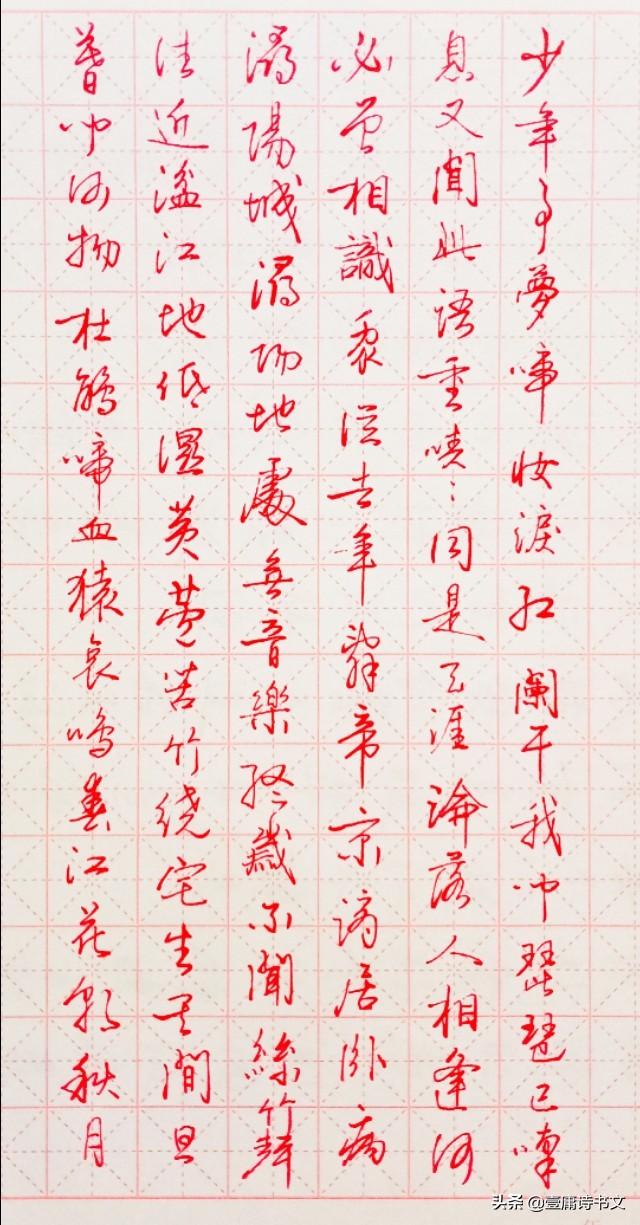 少年事夢啼妝淚紅闌干我聞琵琶已嘆
息又聞此語重唧〻同是天涯淪落人相逢何
必曾相識我從去年辭帝京謫居臥病
潯陽城潯陽地處無音樂終歲不聞絲竹聲
住近湓江地低濕黃蘆苦竹繞宅生其間旦
暮聞何物杜鵑啼血猿哀鳴春江花朝秋月
头条 @壹庸诗书文